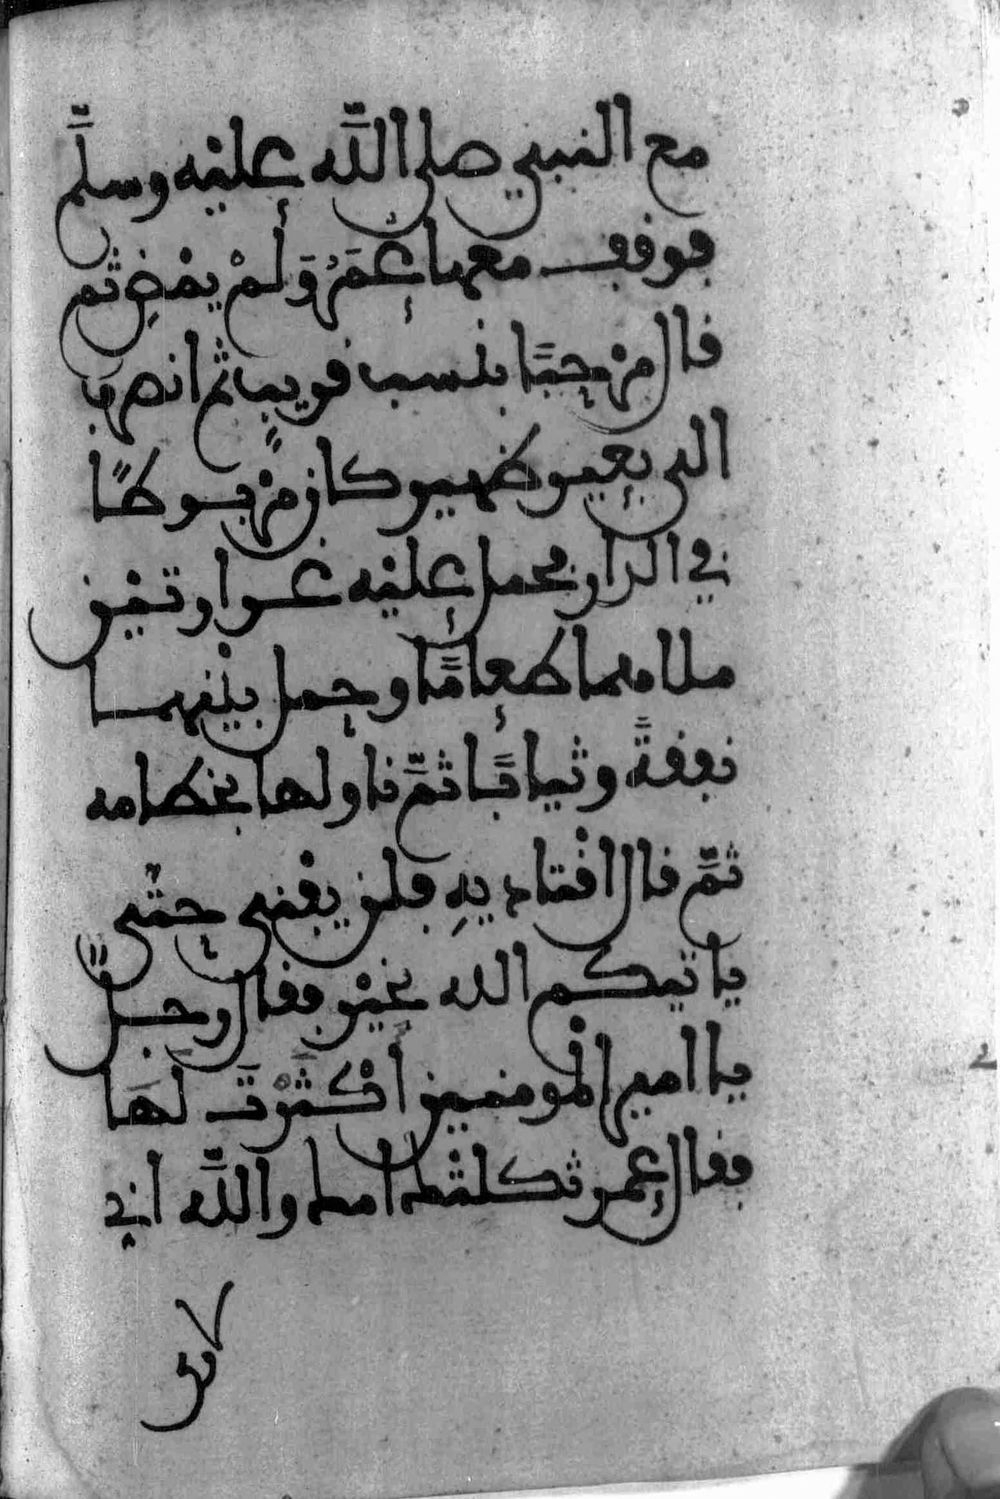 مع النبي صلى الله عليه وسلَّم
فوقف معها عُمَرُ وَلَمْ يمْضِ ثم
قال مرْحبًا بنسب قريب ثم انصرف
الى بعير ظهير كان مرْبوطًا
في الدار فحمل عليْه غرارتيْن
ملاهما طعامًا وحمل بيْنهما
نفقةً وثيابًا ثمَّ ناولها بخطامه
ثمَّ قال اقتاديهِ فلن يفْنى حتَّى
ياتيكم الله بخيْر فقال رجلٌ
يا امير المومنين أكْثَرْتَ لَهَا
فقال عمر ثكلتْك امك والله اني
لارى